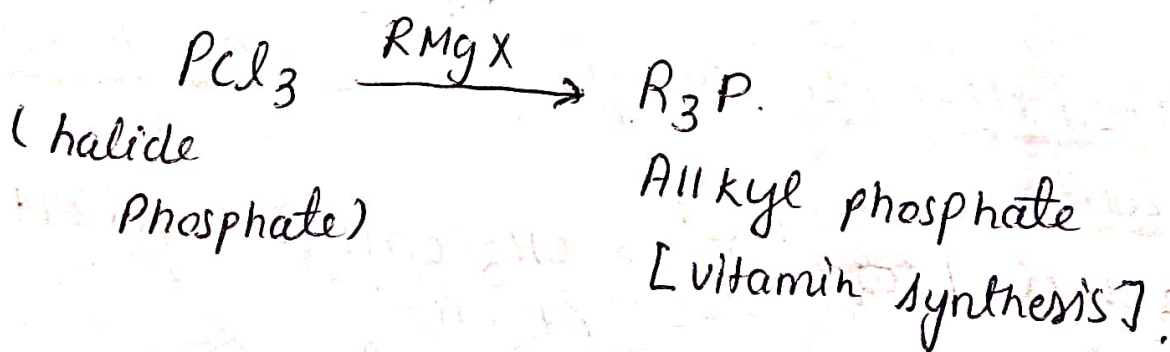 PCl₃ RMgX → R₃P.
(halide
Phosphate)
Allkyl phosphate
[vitamin synthesis].